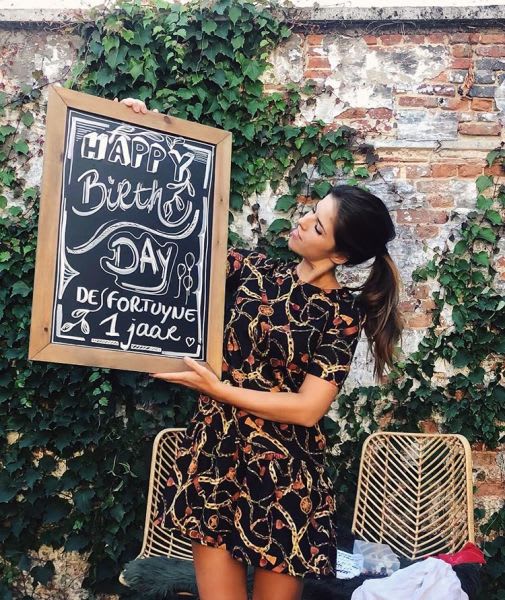 HAPPY
Birth
DAY
DE FORTUYNE
1 jaar